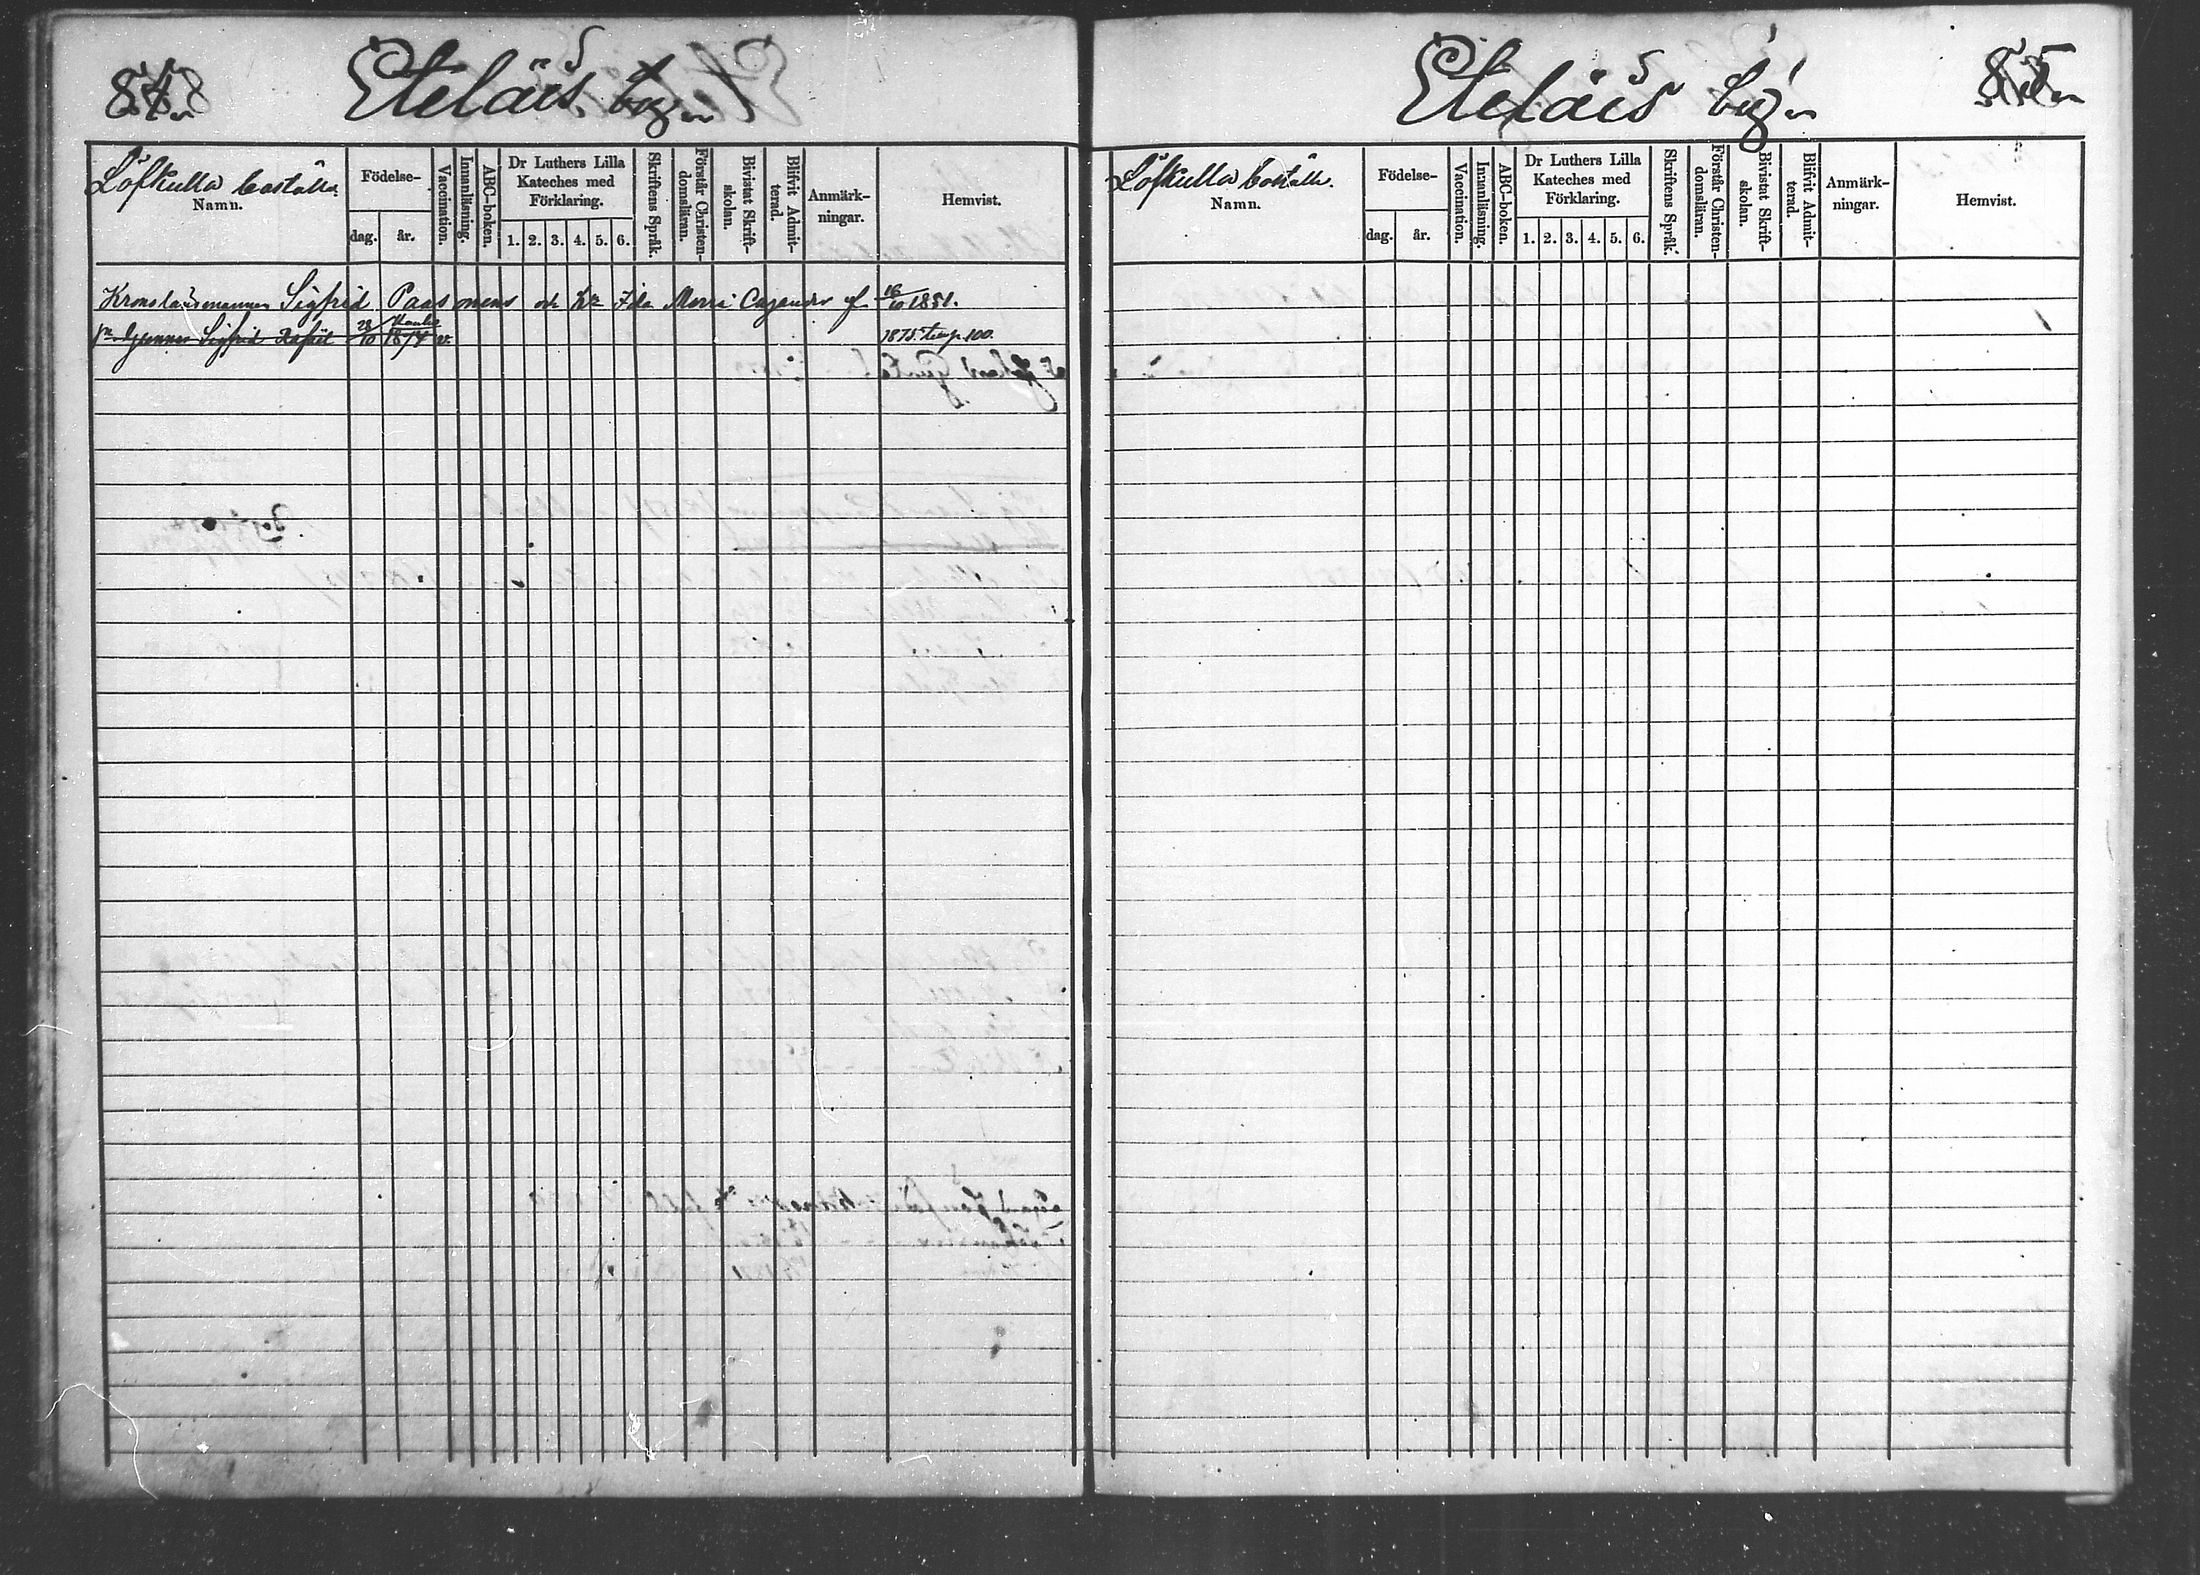 84.
Eteläis by.
Löfkulla boställe.
Namn.
Födelse-
dag.
år.
Vaccination.
Innanläsning.
ABC-boken.
Dr Luthers Lilla
Kateches med
Förklaring.
1. 2. 3. 4. 5. 6.
Skriftens Språk.
Förstår Christen-
domsläran.
Bivistat Skrift-
skolan.
Blifvit Admit-
terad.
Anmärk-
ningar.
Hemvist.
Kronolänsmannen Sigfrid Paasonens och h. Ida Maria
16/10 1851.
Gunnar Sigfrid Rafael 28/10 1874 v.
1875 100.
85
Eteläis by.
Löfkulla boställe.
Namn.
Födelse-
dag.
år.
Vaccination.
Innanläsning.
ABC-boken.
Dr Luthers Lilla
Kateches med
Förklaring.
1. 2. 3. 4. 5. 6.
Skriftens Språk.
Förstår Christen-
domsläran.
Bivistat Skrift-
skolan.
Blifvit Admit-
terad.
Anmärk-
ningar.
Hemvist.